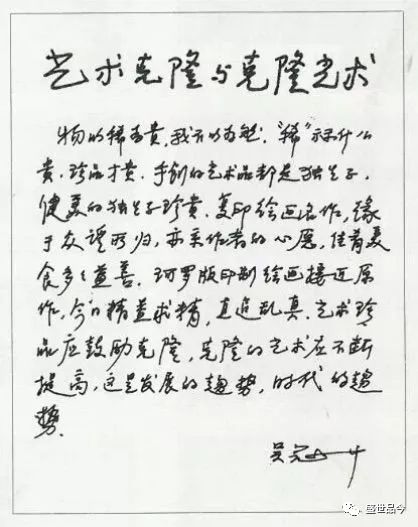 艺术克隆与克隆艺术
物以稀为贵,我不以为然,“稀”什么
贵,珍品才贵.手创的艺术品都是独生子,
健美的独生子珍贵.复印绘画名作,缘
于众望所归,亦作者的心愿,佳肴美
食多多益善.珂罗版印制绘画接近原
作,今日精益求精,直追乱真.艺术珍
品应鼓励克隆,克隆的艺术在不断
提高,这是发展的趨势,时代的趨
势.
吴冠中
盛世品今